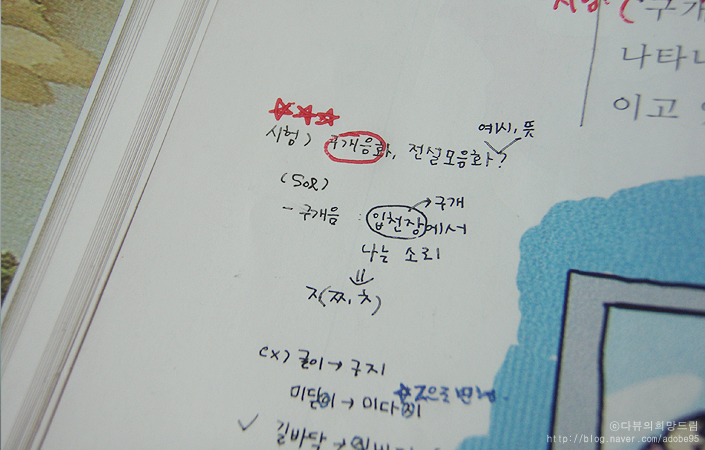 구개
나타
이고
예시, 뜻
시험) 구개음화, 전설모음화?
(Sol)
→구개
- 구개음 : 입천장에서
나는 소리
⇓
ㅈ(ㅉ, ㅊ)
ex) 굳이→구지
미닫이→미다지 ☆ㅈ으로
✓ 길바닥→
ⓒ다뷰의희망드림
http://blog.naver.com/adobe95